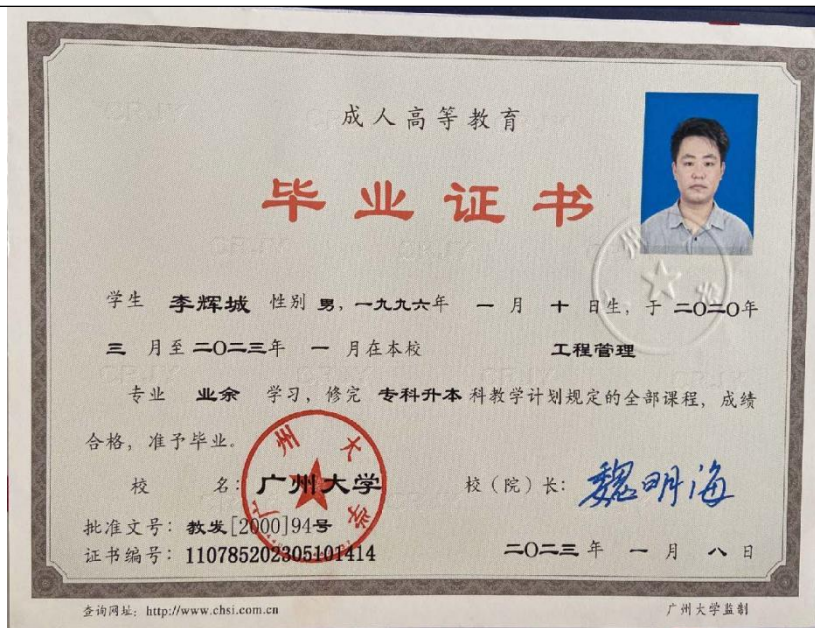 成人高等教育
毕业证书
学生 李辉城 性别 男，一九九六年 一 月 十 日生，于 二〇二〇年
三 月至 二〇二三年 一 月在本校 工程管理
专业 业余 学习，修完 专科升本 科教学计划规定的全部课程，成绩
合格，准予毕业。
校 名：广州大学 校（院）长：魏明海
广州大学
批准文号：教发[2000]94号
证书编号：110785202305101414 二〇二三年 一 月 八 日
查询网址：http://www.chsi.com.cn 广州大学监制